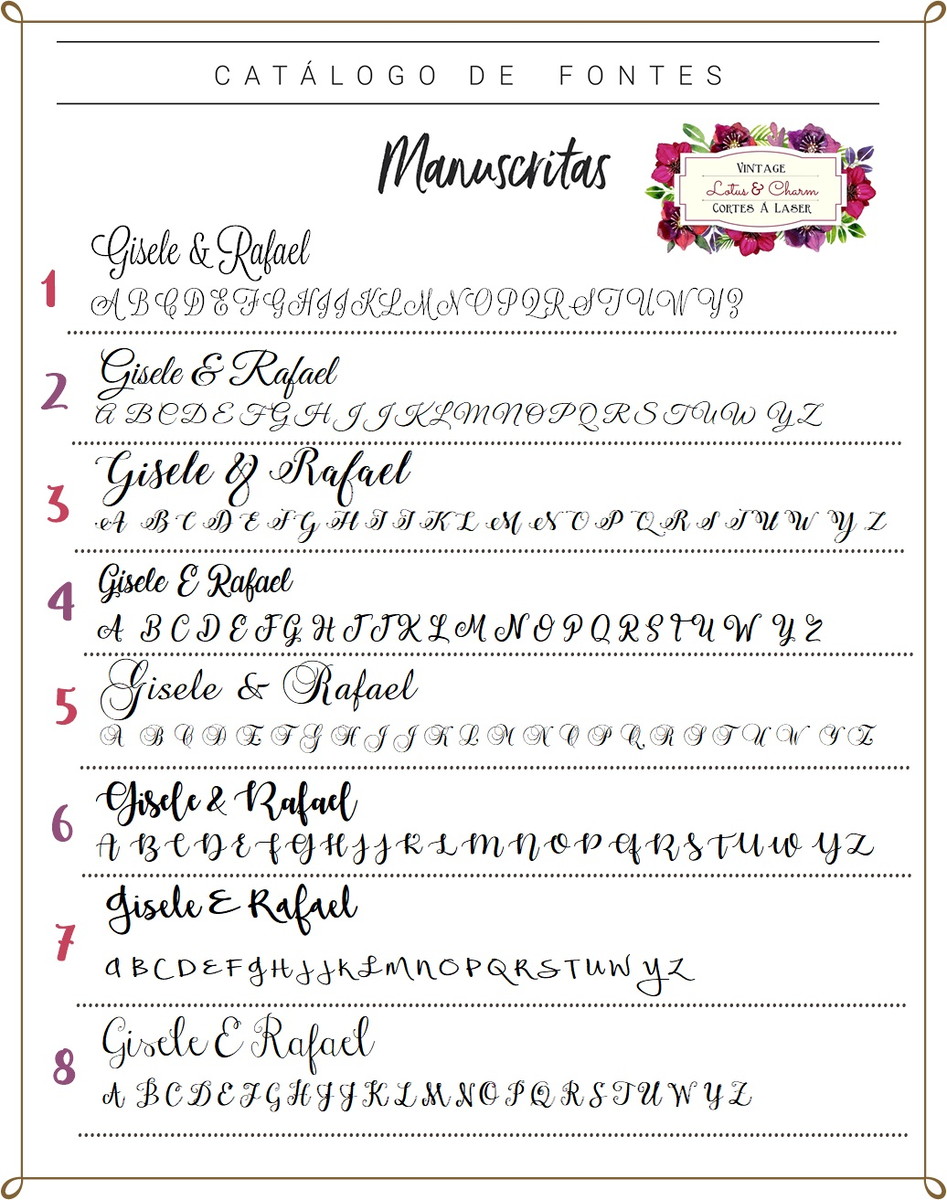 CATÁLOGO DE FONTES
Manuscritas
VINTAGE
Lotus & Charm
CORTES Á LASER
1
Gisele & Rafael
A B C D E F G H I J K L M N O P Q R S T U W Y Z
2
Gisele & Rafael
A B C D E F G H I J K L M N O P Q R S T U W Y Z
3
Gisele & Rafael
A B C D E F G H I J K L M N O P Q R S T U W Y Z
4
Gisele E Rafael
A B C D E F G H I J K L M N O P Q R S T U W Y Z
5
Gisele & Rafael
A B C D E F G H I J K L M N O P Q R S T U W Y Z
6
Gisele & Rafael
A B C D E F G H I J K L M N O P Q R S T U W Y Z
7
Gisele E Rafael
A B C D E F G H I J K L M N O P Q R S T U W Y Z
8
Gisele E Rafael
A B C D E F G H I J K L M N O P Q R S T U W Y Z